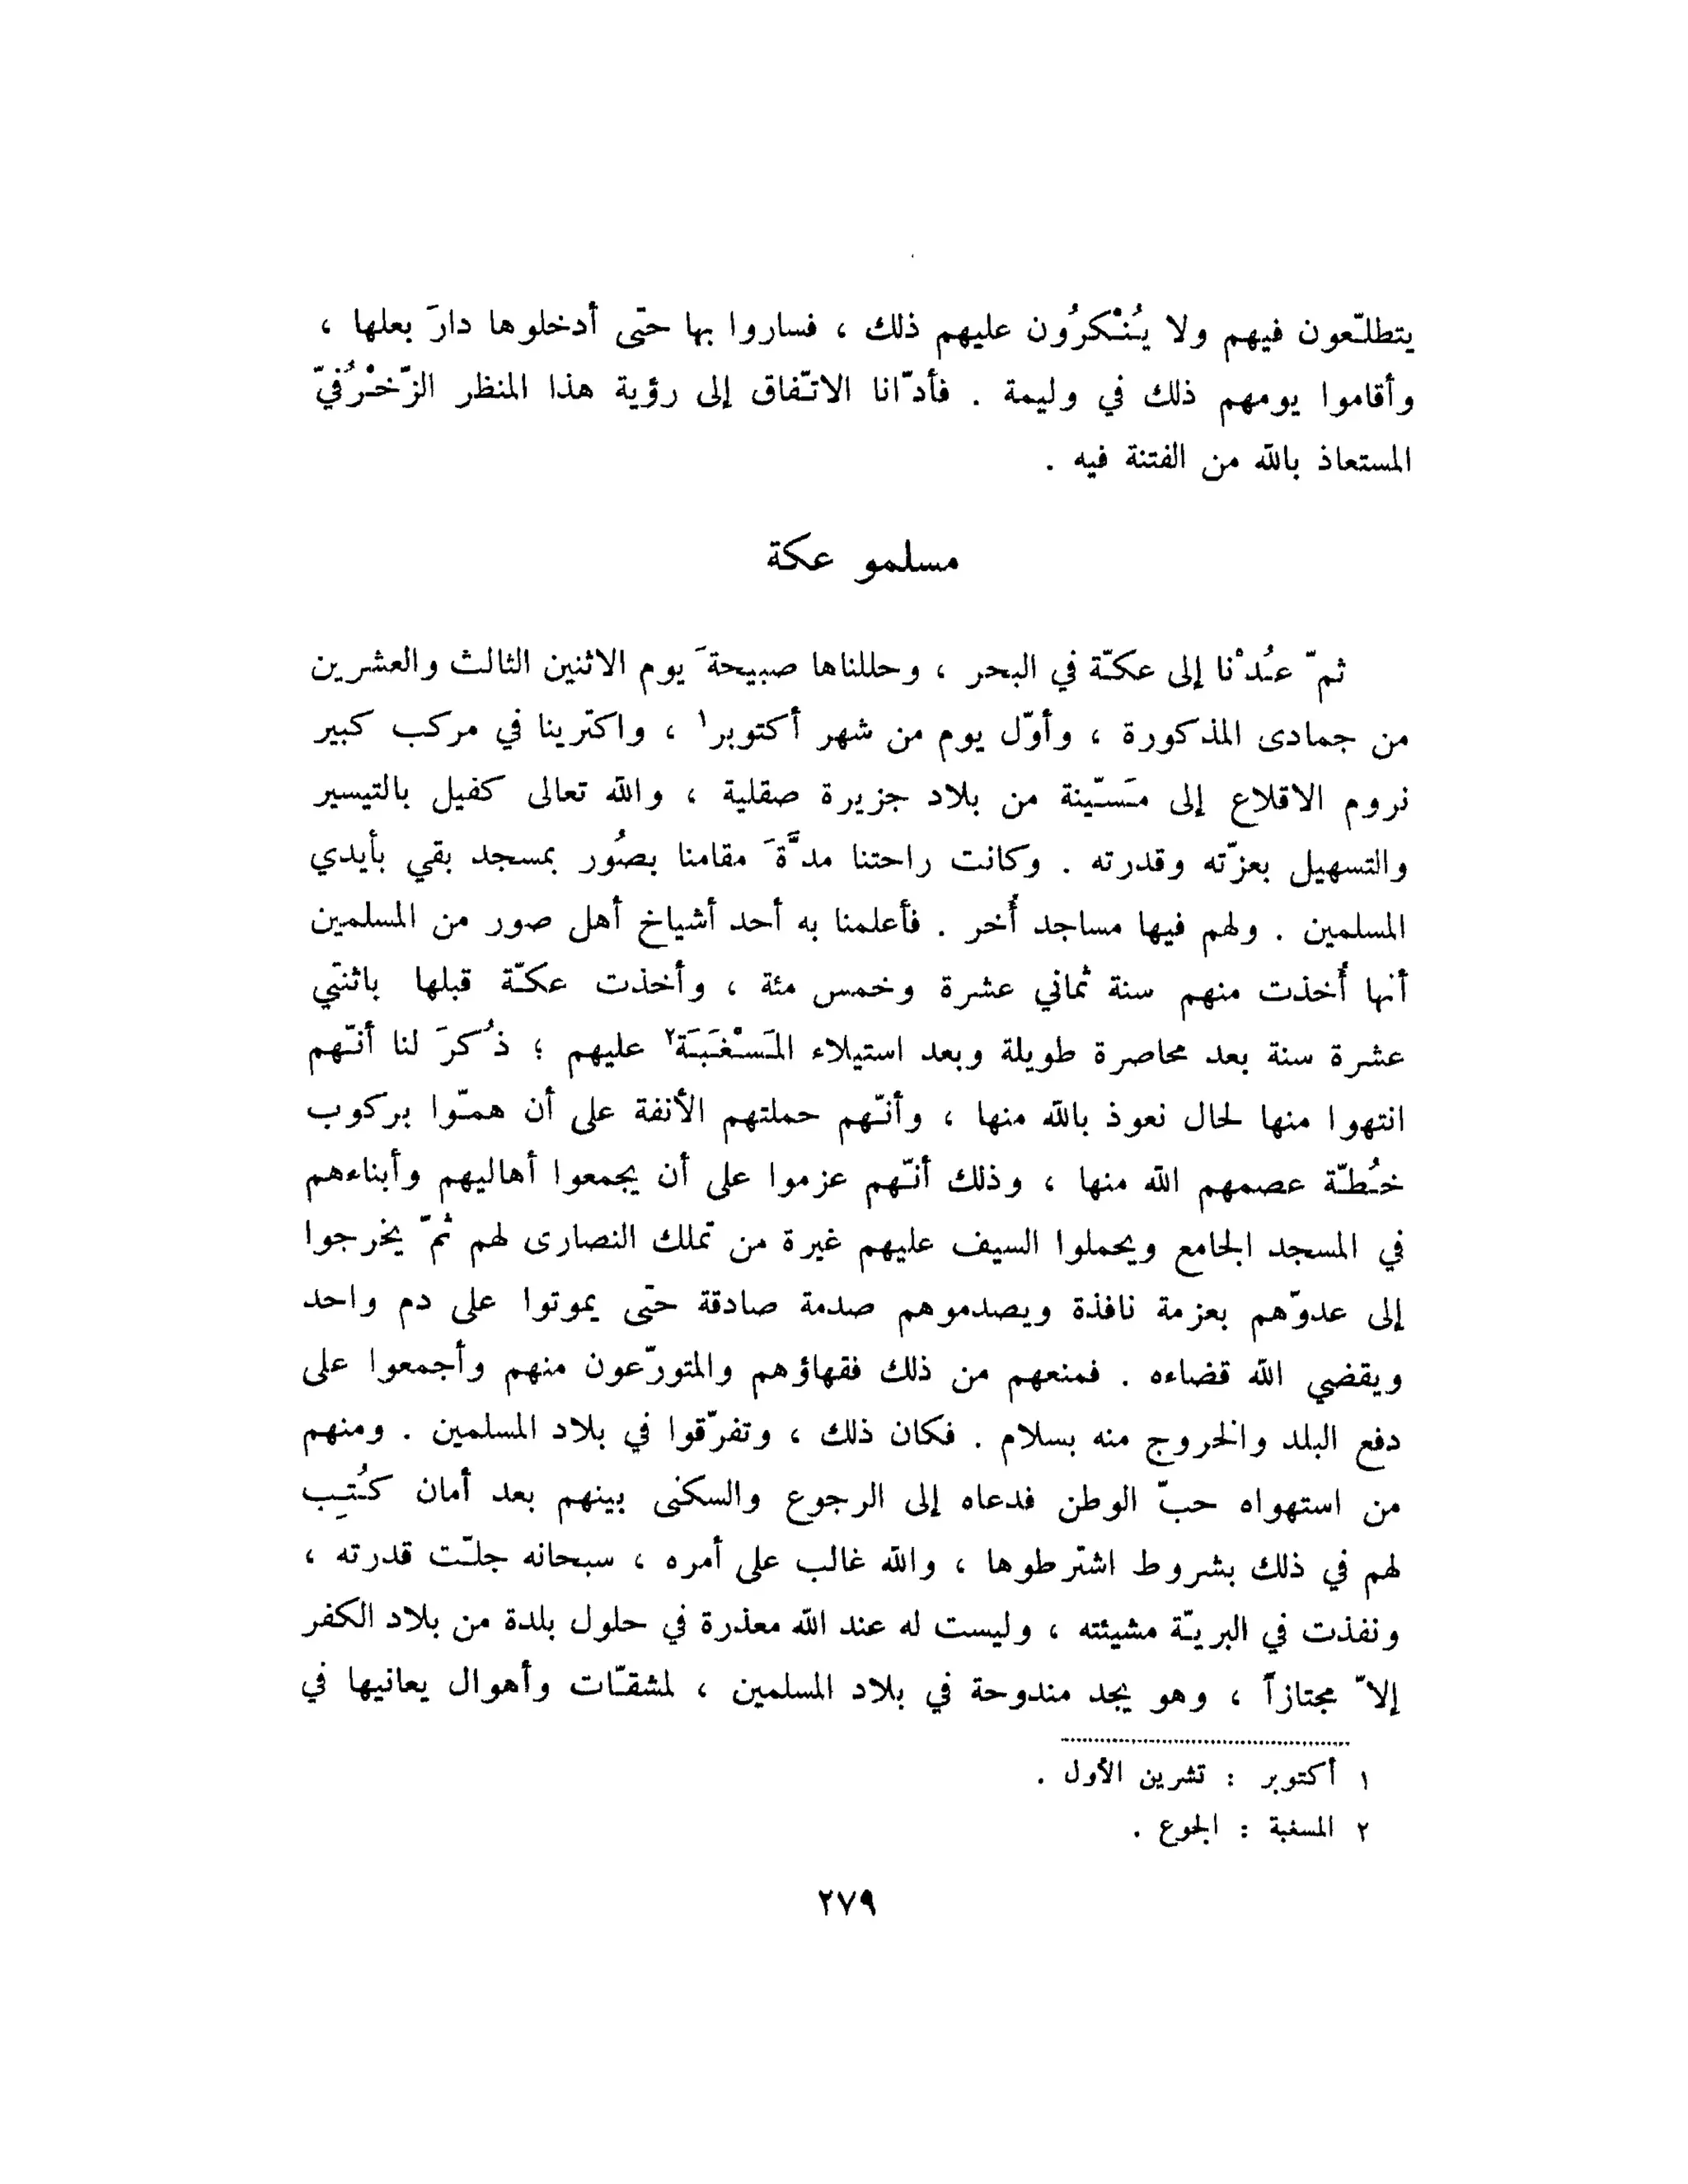 يتطلّعون فيهم ولا يُنْكرُون عليهم ذلك ، فساروا بها حتّى أدخلوها دارَ بعلها ،
وأقاموا يومهم ذلك في وليمة . فأدّانا الاتّفاق إلى رؤية هذا المنظر الزّخْرُفيّ
المستعاذ بالله من الفتنة فيه .
مسلمو عكة
ثمّ عُدْنا إلى عكّة في البحر ، وحللناها صبيحةَ يوم الاثنين الثالث والعشرين
من جمادى المذكورة ، وأوّل يوم من شهر أكتوبر١ ، واكترينا في مركب كبير
نروم الاقلاع إلى مَسّينة من بلاد جزيرة صقلية ، والله تعالى كفيل بالتيسير
والتسهيل بعزّته وقدرته . وكانت راحتنا مدّةَ مقامنا بصُور بمسجد بقي بأيدي
المسلمين . ولهم فيها مساجد أُخر . فأعلمنا به أحد أشياخ أهل صور من المسلمين
أنها أُخذت منهم سنة ثماني عشرة وخمس مئة ، وأخذت عكّة قبلها باثنتَي
عشرة سنة بعد محاصرة طويلة وبعد استيلاء المَسْغَبَة٢ عليهم ؛ ذُكرَ لنا أنّهم
انتهوا منها لحال نعوذ بالله منها ، وأنّهم حملتهم الأنفة على أن همّوا بركوب
خُطّة عصمهم الله منها ، وذلك أنّهم عزموا على أن يجمعوا أهاليهم وأبناءهم
في المسجد الجامع ويحملوا السيف عليهم غيرة من تملك النصارى لهم ثمّ يخرجوا
إلى عدوّهم بعزمة نافذة ويصدموهم صدمة صادقة حتّى يموتوا على دم واحد
ويقضي الله قضاءه . فمنعهم من ذلك فقهاؤهم والمتورّعون منهم وأجمعوا على
دفع البلد والخروج منه بسلام . فكان ذلك ، وتفرّقوا في بلاد المسلمين . ومنهم
من استهواه حبّ الوطن فدعاه إلى الرجوع والسكنى بينهم بعد أمان كُتِب
لهم في ذلك بشروط اشترطوها ، والله غالب على أمره ، سبحانه جلّت قدرته ،
ونفذت في البريّة مشيئته ، وليست له عند الله معذرة في حلول بلدة من بلاد الكفر
إلاّ مجتازاً ، وهو يجد مندوحة في بلاد المسلمين ، لمشقّات وأهوال يعانيها في
١ أكتوبر : تشرين الأول .
٢ المسغبة : الجوع .
٢٧٩